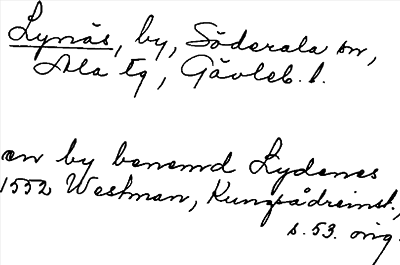 Lynäs, by, Söderala sn,
Ala tg, Gävleb. l.
en by benemd Lydenes
1552 Westman, Kungsådreinst.,
s. 53. orig.